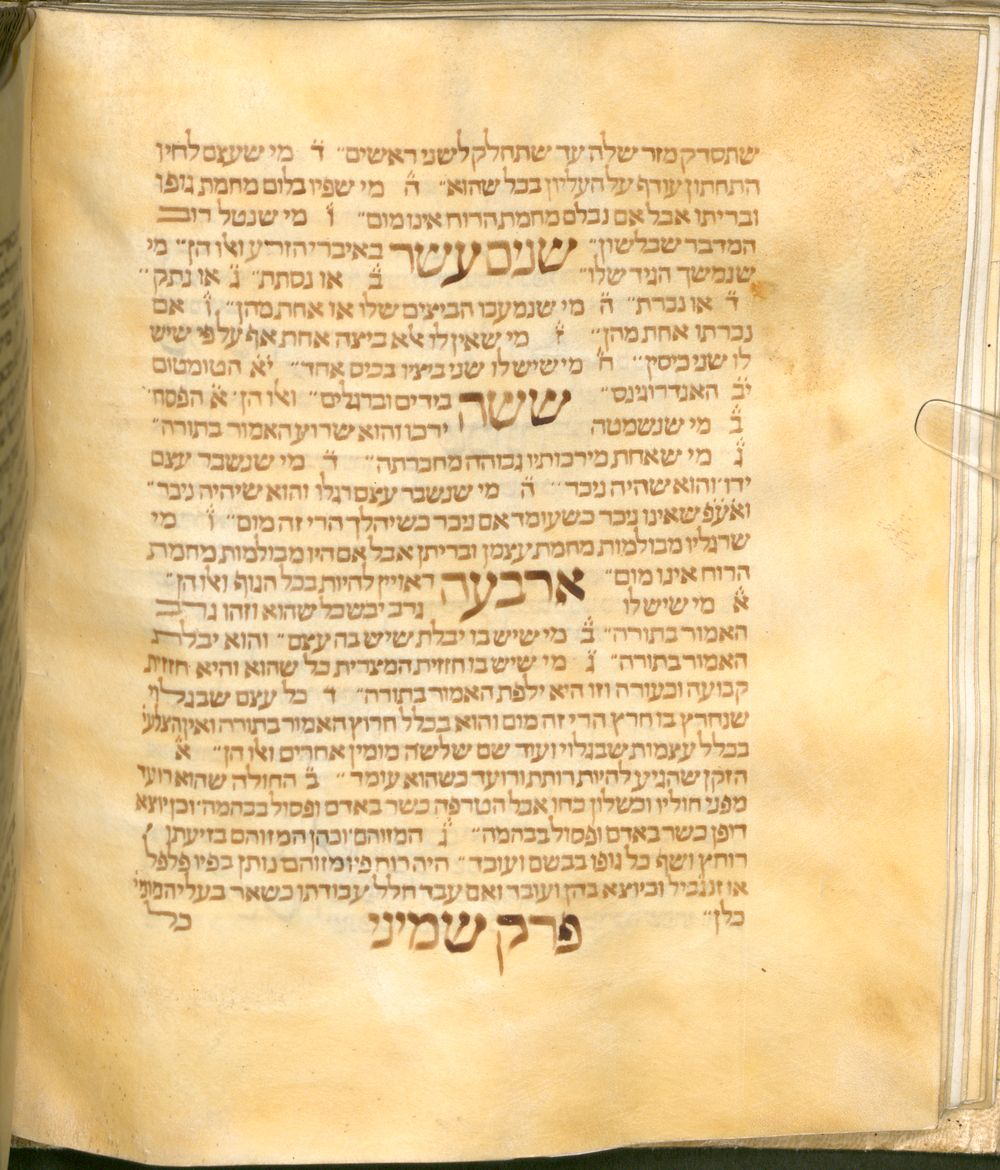 שתסדק מזר שלה עד שתחלק לשני ראשים״ ד̇ מי שעצם לחיו
התחתון עודף על העליון בכל שהוא״ ה̇ מי שפיו בלום מחמת גופו
ובריתו אבל אם נבלם מחמת הרוח אינו מום״ ו̇ מי שנטל רוב
המדבר שבלשון״ שנים עשר באיברי הזרע ואלו הן״ מי
שנמשך הגיד שלו״ ב̇ או נסתת״ ג̇ או נתק״
ד̇ או נכרת״ ה̇ מי שנמעכו הביצים שלו או אחת מהן״ ו̇ אם
נכרתו אחת מהן״ ז̇ מי שאין לו אלא ביצה אחת אף על פי שיש
לו שני כיסין״ ח̇ מי שיש לו שני ביציו בכיס אחד״ יא̇ הטומטום
יב̇ האנדרוגינס״ ששה בידים וברגלים״ ואלו הן׳ א̇ הפסח׳
ב̇ מי שנשמטה ירכו וזהוא שרוע האמור בתורה״
ג̇ מי שאחת מירכותיו גבוהה מחברתה״ ד̇ מי שנשבר עצם
ידו׳ והוא שהיה ניכר״ ה̇ מי שנשבר עצם רגלו והוא שיהיה ניכר״
ואע̇פ̇ שאינו ניכר כשעומד אם ניכר כשיהלך הרי זה מום״ ו̇ מי
שרגליו מבולמות מחמת עצמן ובריתן אבל אם היו מבולמות מחמת
הרוח אינו מום״ ארבעה ראויין להיות בכל הגוף ואלו הן״
א̇ מי שיש לו גרב יבש כל שהוא וזהו גרב
האמור בתורה״ ב̇ מי שיש בו יבלת שיש בה עצם״ והוא יבלת
האמור בתורה״ ג̇ מי שיש בו חזזית המצרית כל שהוא והיא חזזית
קבועה וכעורה וזו היא ילפת האמור בתורה״ ד̇ כל עצם שבגלוי
שנחרץ בו חרץ הרי זה מום והוא בכלל חרוץ האמור בתורה ואין הצלעו׳
בכלל עצמות שבגלוי ועוד שם שלשה מומין אחרים ואלו הן״ א̇
הזקן שהגיע להיות רותת ורועד כשהוא עומד״ ב̇ החולה שהוא רועד
מפני חוליו וכשלון כחו אבל הטרפה כשר באדם ופסול בבהמה׳ וכן יוצא
דופן כשר באדם ופסול בבהמה״ ג̇ המזוהם׳ וכהן המזוהם בזיעתן
רוחץ ושף כל גופו בבשם ועובד״ היה רוח פיו מזוהם נותן בפיו פלפל
או זנגביל וכיוצא בהן ועובד ואם עבד חלל עבודתו כשאר בעלי המומי׳
כלן״ פרק שמיני כל